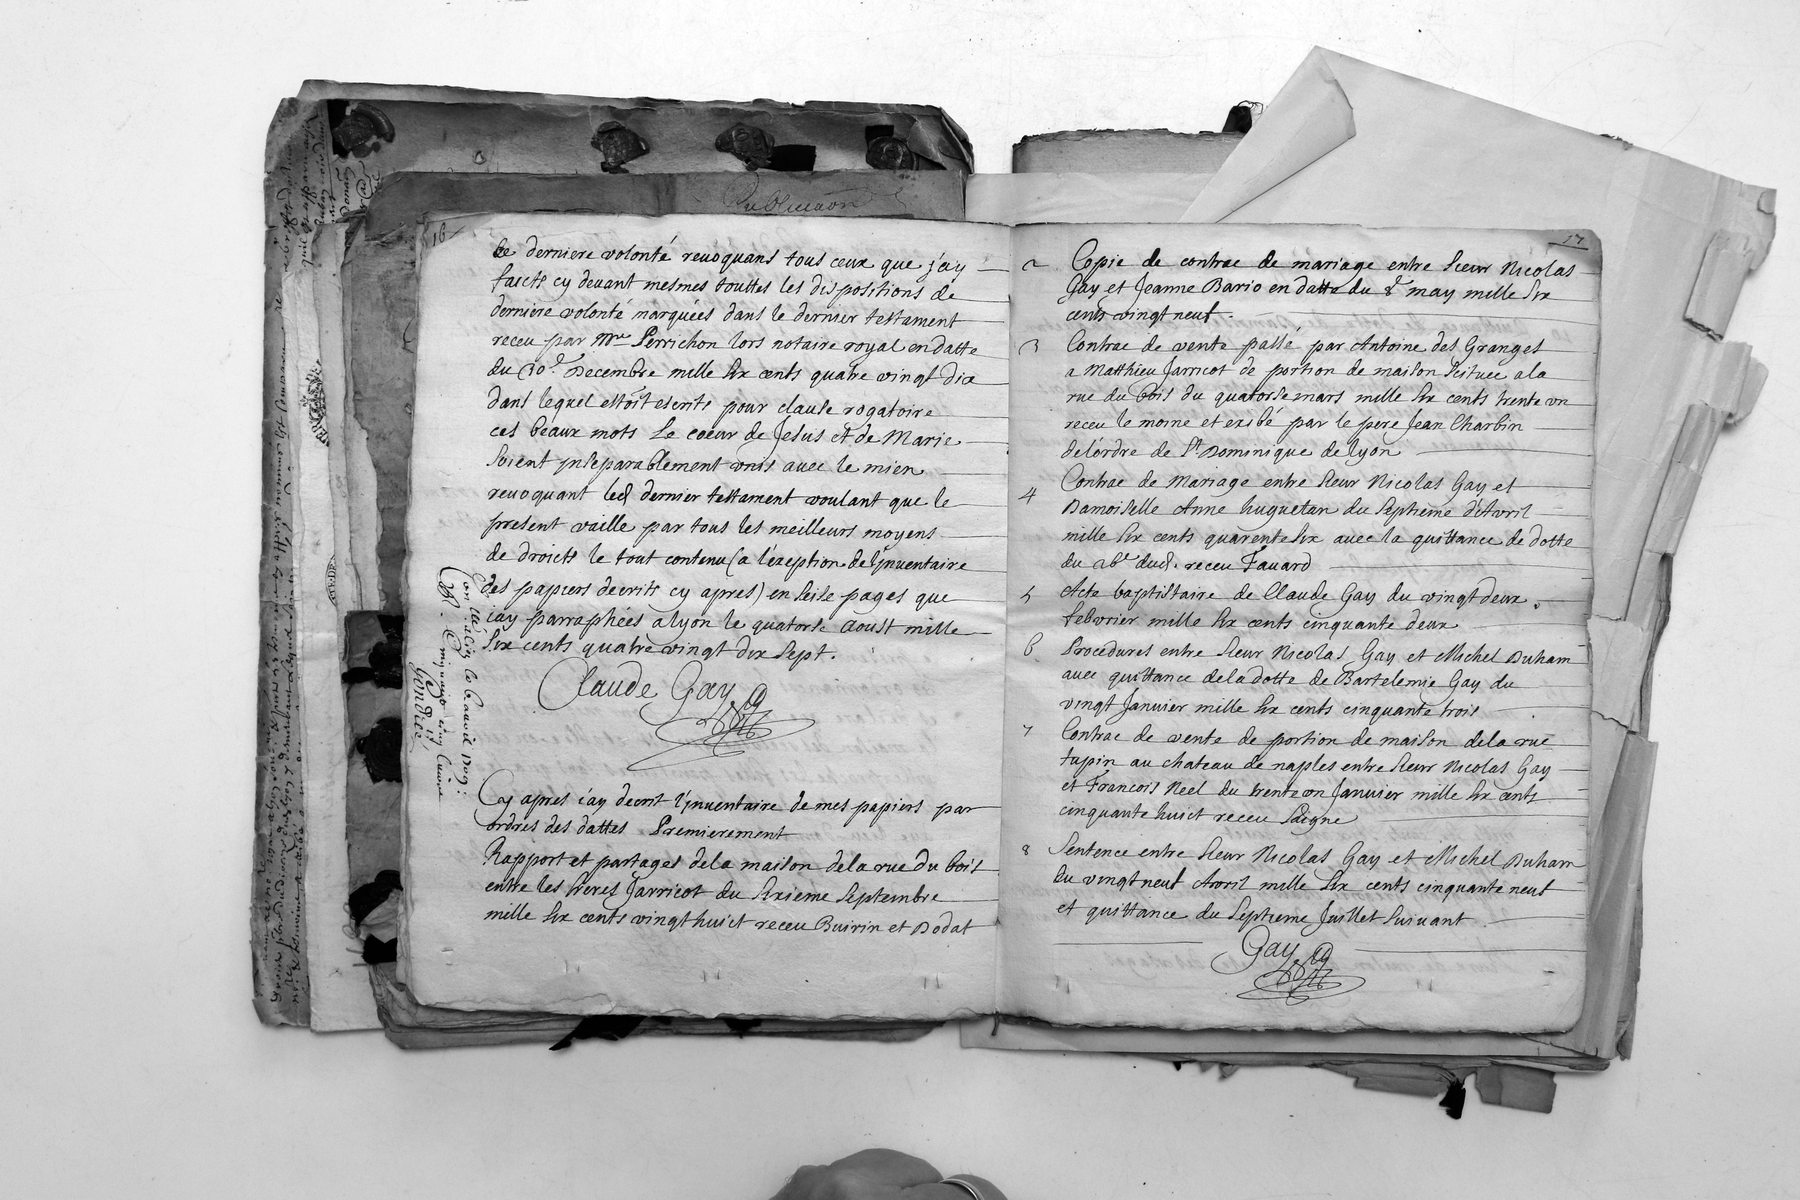 16
de derniere volonté revoquans tous ceux que j'ay
faicts cy devant mesmes touttes les dispositions de
derniere volonté marquées dans le dernier testament
receu par Mre Perrichon lors notaire royal en datte
du 30e Decembre mille six cents quatre vingt dix
dans lequel estoit escrits pour clause rogatoire
ces beaux mots Le coeur de Jesus et de Marie
soient inseparablement unis avec le mien
revoquant led dernier testament voulant que le
present vaille par tous les meilleurs moyens
de droicts le tout contenu (a l'exeption de l'jnventaire
des papiers decrits cy apres) en seise pages que
i'ay parraphées a lyon le quatorse Aoust mille
six cents quatre vingt dix sept.
Claude Gay
Cy apres i'ay decrit l'jnventaire de mes papiers par
ordres des dattes Premierement
Rapport et partages de la maison de la rue du bois
entre les freres Jarricot du sixieme Septembre
mille six cents vingt huict receu Buirin et Dodat
17
2 Copie de contrac de mariage entre sieur Nicolas
Gay et Jeanne Bario en datte du 8e may mille six
cents vingt neuf.
3 Contrac de vente passé par Antoine des Granges
a Matthieu Jarricot de portion de maison scituée a la
rue du bois du quatorse mars mille six cents trente un
receu le moine et exibé par le pere Jean Charbin
de l'ordre de St Dominique de lyon
4 Contrac de Mariage entre sieur Nicolas Gay et
Damoiselle Anne huguetan du septieme d'Avril
mille six cents quarente six avec la quittance de dotte
du 26e dud. receu Favard
5 Acte baptistaire de Claude Gay du vingt deux
febvrier mille six cents cinquante deux
6 Procedures entre sieur Nicolas Gay et Michel Duham
avec quittance de la dotte de Bartelemie Gay du
vingt Janvier mille six cents cinquante trois
7 Contrac de vente de portion de maison de la rue
tupin au chateau de naples entre sieur Nicolas Gay
et Francois Neel du trente un Janvier mille six cents
cinquante huict receu
8 Sentence entre sieur Nicolas Gay et Michel Duham
du vingt neuf Avril mille six cents cinquante neuf
et quittance du septieme Juillet suivant
Gay